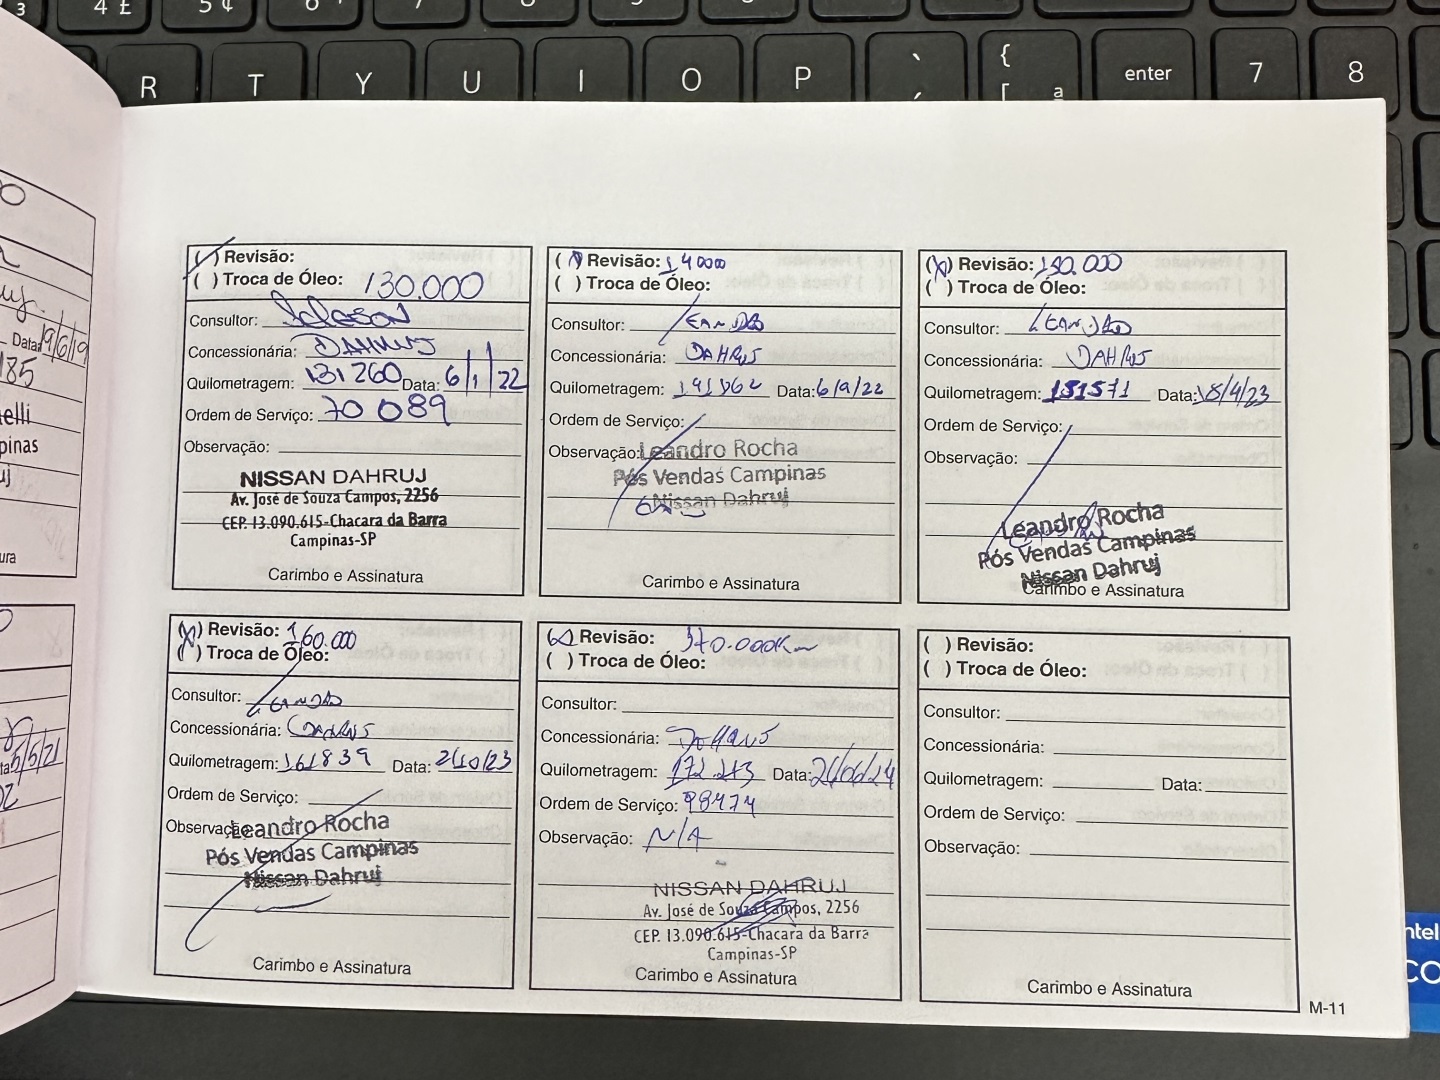 3 4 £ 5 ¢ 6
R T Y U I O P ` { enter 7 8
[ ª
Data: 19/6/19
185
elli
pinas
uj
ura
5/5/21
( / ) Revisão:
( ) Troca de Óleo: 130.000
Consultor:
Concessionária: DAHRUJ
Quilometragem: 131260 Data: 6/1/22
Ordem de Serviço: 70089
Observação:
NISSAN DAHRUJ
Av. José de Souza Campos, 2256
CEP. 13.090.615-Chacara da Barra
Campinas-SP
Carimbo e Assinatura
( ) Revisão: 140000
( ) Troca de Óleo:
Consultor: LEANDRO
Concessionária: DAHRUJ
Quilometragem: 141862 Data: 6/9/22
Ordem de Serviço:
Observação:
Leandro Rocha
Pós Vendas Campinas
Nissan Dahruj
Carimbo e Assinatura
(X) Revisão: 150.000
( ) Troca de Óleo:
Consultor: LEANDRO
Concessionária: DAHRUJ
Quilometragem: 151571 Data: 18/4/23
Ordem de Serviço:
Observação:
Leandro Rocha
Pós Vendas Campinas
Nissan Dahruj
Carimbo e Assinatura
(X) Revisão: 160.000
( ) Troca de Óleo:
Consultor: LEANDRO
Concessionária: DAHRUJ
Quilometragem: 161839 Data: 2/10/23
Ordem de Serviço:
Observação:
Leandro Rocha
Pós Vendas Campinas
Nissan Dahruj
Carimbo e Assinatura
(X) Revisão: 170.000Km
( ) Troca de Óleo:
Consultor:
Concessionária: DAHRUJ
Quilometragem: 172.213 Data: 21/06/24
Ordem de Serviço: 98474
Observação: N/A
NISSAN DAHRUJ
Av. José de Souza Campos, 2256
CEP. 13.090.615-Chacara da Barra
Campinas-SP
Carimbo e Assinatura
( ) Revisão:
( ) Troca de Óleo:
Consultor:
Concessionária:
Quilometragem: Data:
Ordem de Serviço:
Observação:
Carimbo e Assinatura
M-11
ntel
CO